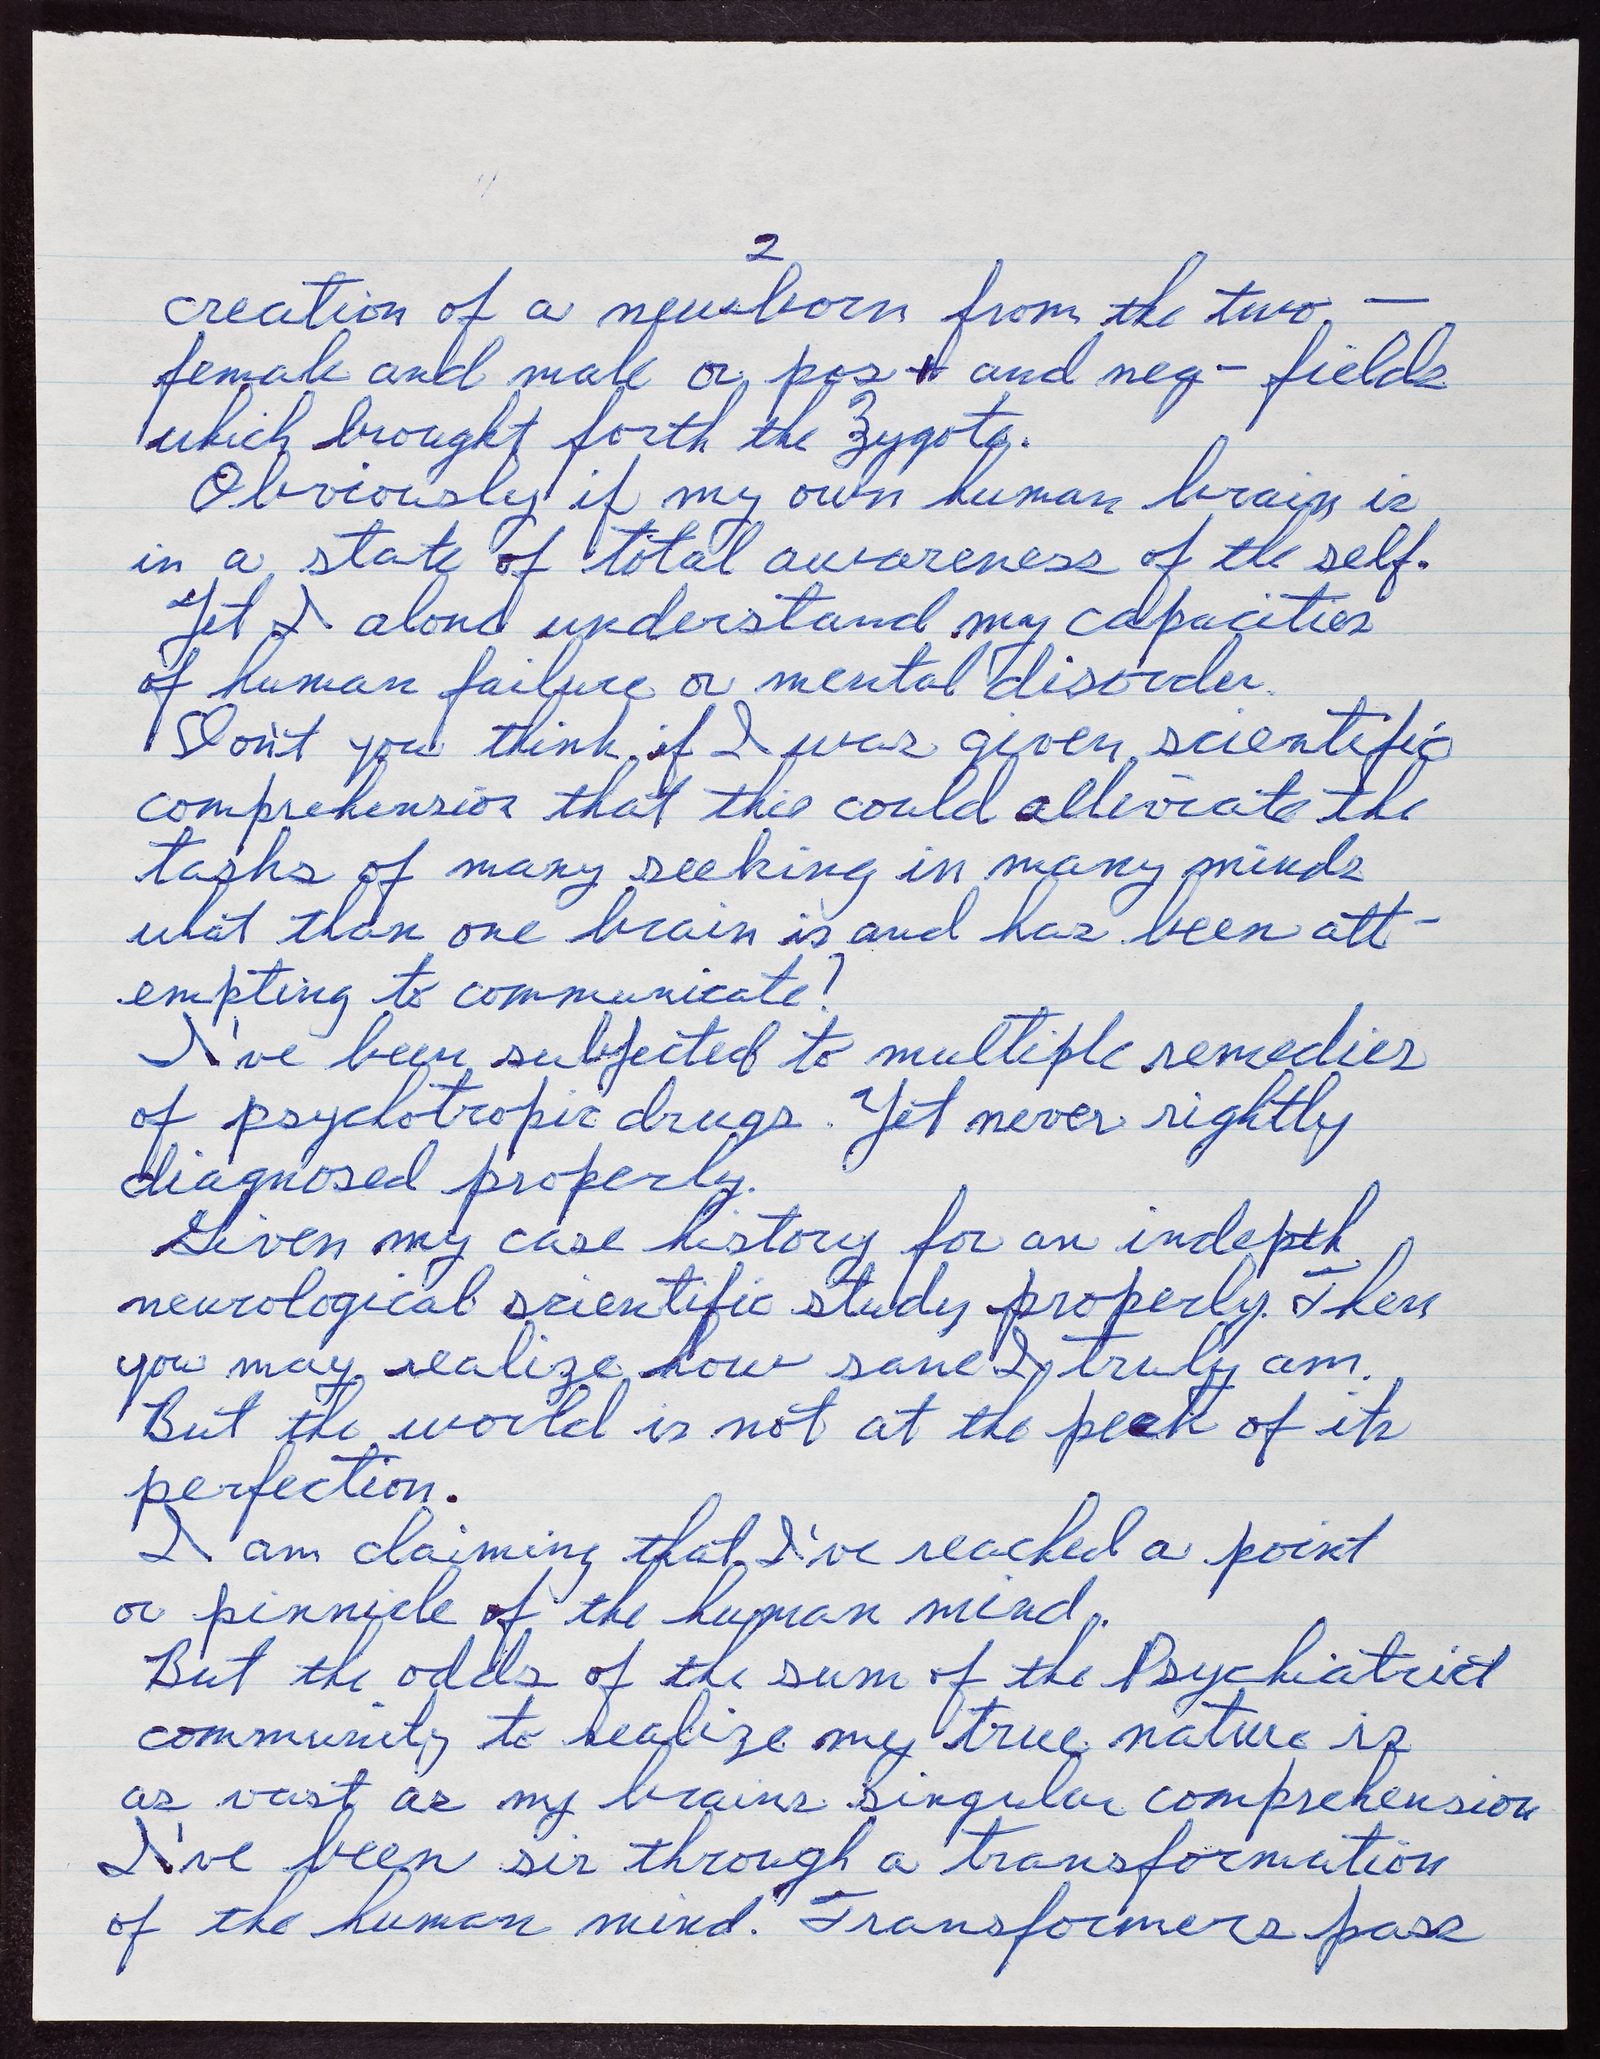 2
creation of a newborn from the two. —
female and male or pos + and neg - fields
which brought forth the Zygote.
Obviously if my own human brain is
in a state of total awareness of the self.
Yet I alone understand my capacities
of human failure or mental disorder.
Don't you think if I was given scientific
comprehension that this could alleviate the
tasks of many seeking in many minds
what than one brain is and has been att-
empting to communicate?
I've been subjected to multiple remedies
of psychotropic drugs. Yet never rightly
diagnosed properly.
Given my case history for an indepth
neurological scientific study properly. Then
you may realize how sane I truly am.
But the world is not at the peak of its
perfection.
I am claiming that I've reached a point
or pinnicle of the human mind.
But the odds of the sum of the Psychiatrict
community to realize my true nature is
as vast as my brains singular comprehension
I've been sir through a transformation
of the human mind. Transformers pass